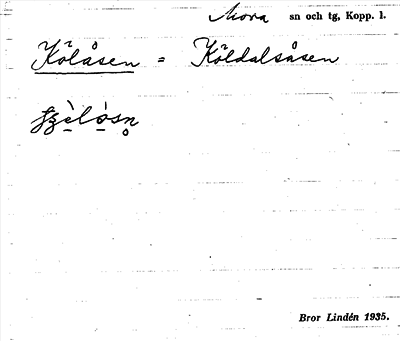 Mora sn och tg, Kopp. l.
Kölåsen = Köldalsåsen
Bror Lindén 1935.